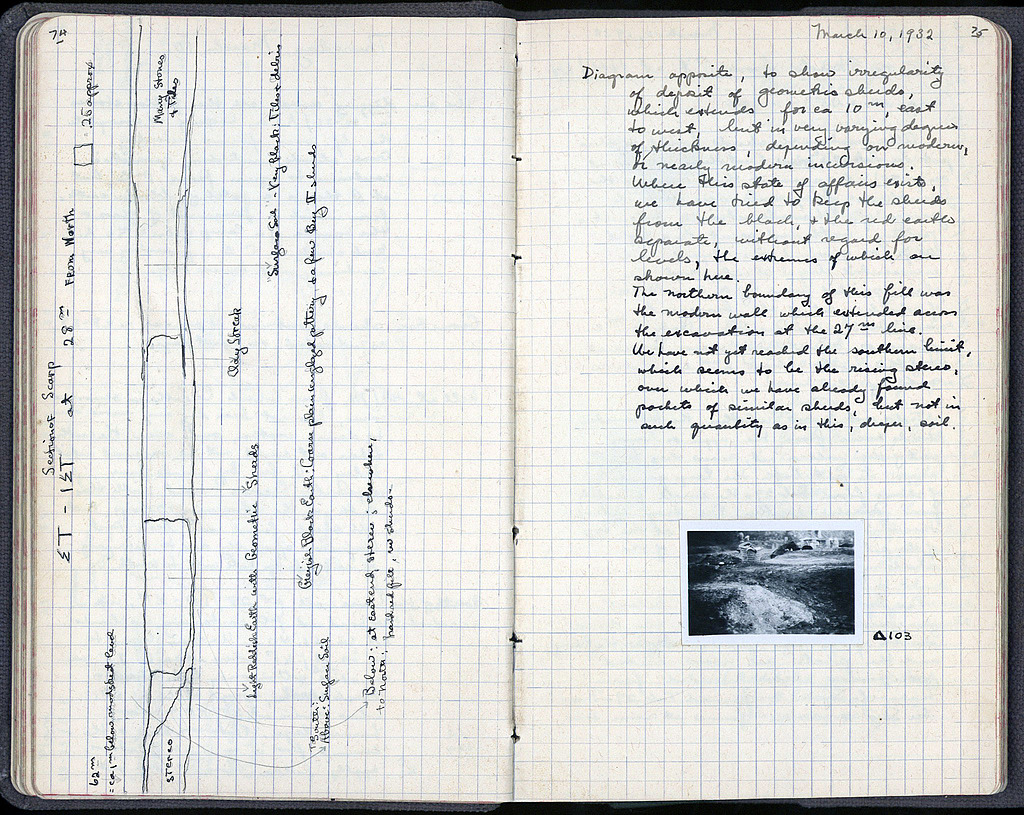 74
Section of Scarp
ΣT - 1ΣT at 28m From North
.25 approx.
62m
= ca 1m below modern level
Many Stones
& Tiles
Stereo
"Surface Soil" - Very black: Tiles & debris
Clay Streak
Light Reddish Earth with Geometric Sherds
Greyish Black Earth: Coarse plain unglazed pottery, & a few Buy II sherds
Above: Surface Soil
Below: at East end, stereo; elsewhere,
to North: hard red fill, no sherds -
March 10, 1932
75
Diagram opposite, to show irregularity
of deposit of geometric sherds,
which extends for ca 10m, east
to west, but in very varying degrees
of thickness, depending on modern,
or nearly modern incursions.
Where this state of affairs exists,
we have tried to keep the sherds
from the black, & the red earths
separate, without regard for
levels, the extremes of which are
shown here.
The northern boundary of this fill was
the modern wall which extended across
the excavation at the 27m line.
We have not yet reached the southern limit,
which seems to be the rising stereo,
over which we have already found
pockets of similar sherds, but not in
such quantity as in this, deeper, soil.
Δ103